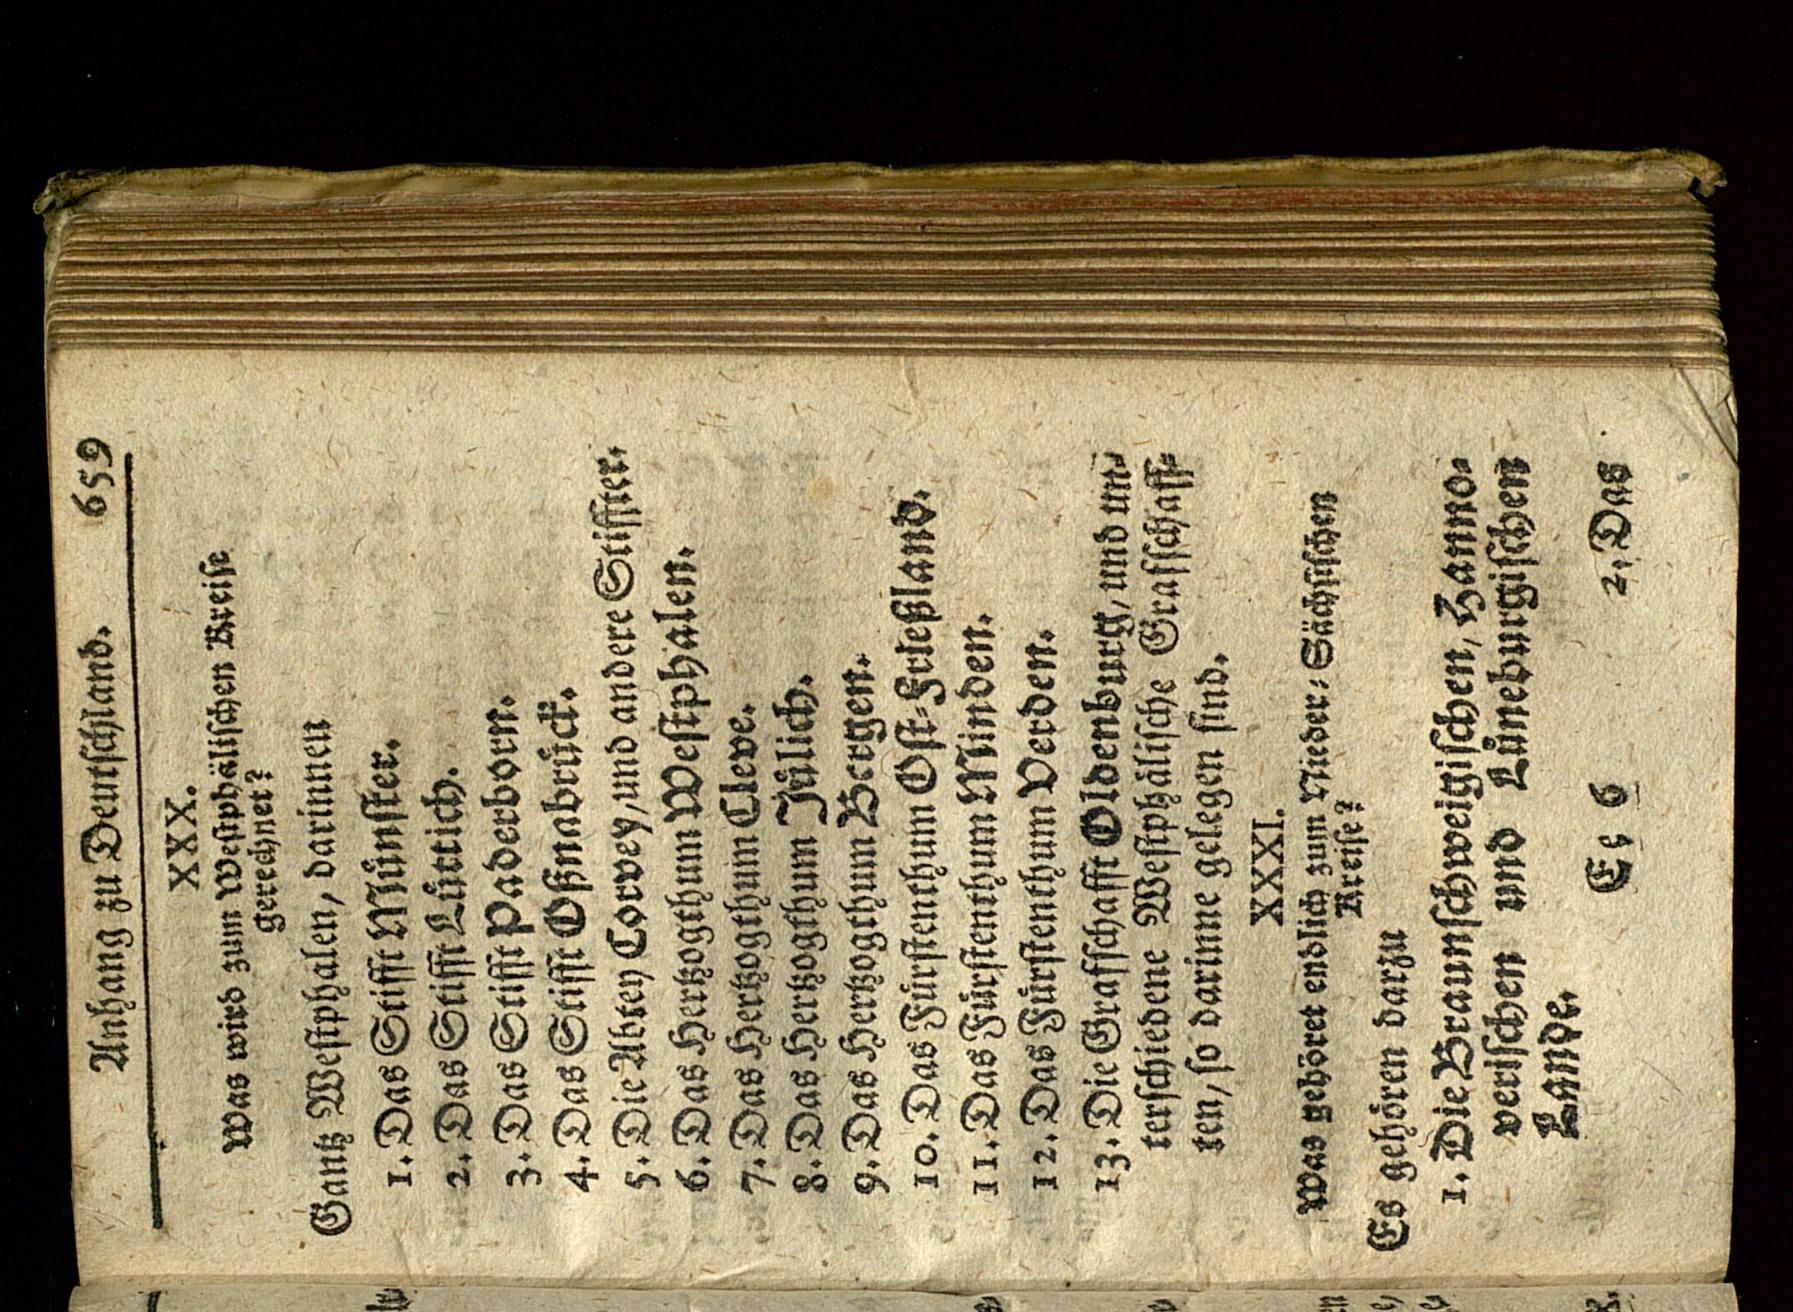 Anhang zu Deutschland. 659
XXX.
Was wird zum Westphälischen Kreise
gerechnet?
Gantz Westphalen, darinnen
1. Das Stifft Münster.
2. Das Stifft Lüttich.
3. Das Stifft Paderborn.
4. Das Stifft Oßnabrück.
5. Die Abtey Corvey, und andere Stiffter.
6. Das Hertzogthum Westphalen.
7. Das Hertzogthum Cleve.
8. Das Hertzogthum Jülich.
9. Das Hertzogthum Bergen.
10. Das Fürstenthum Ost-Frießland.
11. Das Fürstenthum Minden.
12. Das Fürstenthum Verden.
13. Die Grafschafft Oldenburg, und un-
terschiedene Westphälische Grafschaff-
ten, so darinne gelegen sind.
XXXI.
Was gehöret endlich zum Nieder-Sächsischen
Kreise?
Es gehören darzu
1. Die Braunschweigischen, Hanno-
verischen und Lüneburgischen
Lande.
Ee 6 2. Das